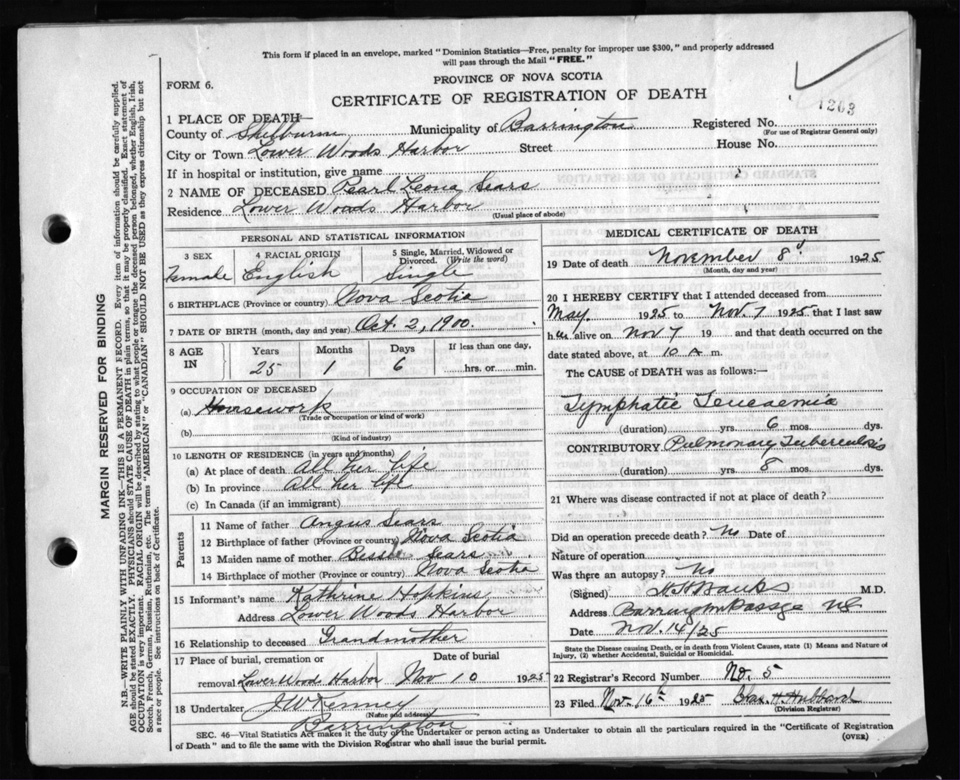 This form if placed in an envelope, marked "Dominion Statistics—Free, penalty for improper use $300," and properly addressed
will pass through the Mail "FREE."
PROVINCE OF NOVA SCOTIA
FORM 6.
CERTIFICATE OF REGISTRATION OF DEATH
1263
1 PLACE OF DEATH—
County of Shelburne Municipality of Barrington Registered No.
(For use of Registrar General only)
City or Town Lower Woods Harbor Street House No.
If in hospital or institution, give name
2 NAME OF DECEASED Pearl Leona Sears
Residence Lower Woods Harbor
(Usual place of abode)
PERSONAL AND STATISTICAL INFORMATION
3 SEX 4 RACIAL ORIGIN 5 Single, Married, Widowed or
Divorced. (Write the word)
Female English Single
6 BIRTHPLACE (Province or country) Nova Scotia
7 DATE OF BIRTH (month, day and year) Oct. 2, 1900.
8 AGE IN Years Months Days If less than one day,
25 1 6 hrs. or min.
9 OCCUPATION OF DECEASED
(a) Housework
(Trade or occupation or kind of work)
(b)
(Kind of industry)
10 LENGTH OF RESIDENCE (in years and months)
(a) At place of death All her life
(b) In province All her life
(c) In Canada (if an immigrant)
Parents
11 Name of father Angus Sears
12 Birthplace of father (Province or country) Nova Scotia
13 Maiden name of mother Bessie Sears
14 Birthplace of mother (Province or country) Nova Scotia
15 Informant's name Kathrine Hopkins
Address Lower Woods Harbor
16 Relationship to deceased Grandmother
17 Place of burial, cremation or Date of burial
removal Lower Wood Harbor Nov 10 1925
18 Undertaker J W Kenney
(Name and address)
Barrington
MEDICAL CERTIFICATE OF DEATH
19 Date of death November 8d 1925
(Month, day and year)
20 I HEREBY CERTIFY that I attended deceased from
May, 1925 to Nov. 7 1925 that I last saw
her alive on Nov 7 19 and that death occurred on the
date stated above, at 10 a m.
The CAUSE of DEATH was as follows:—
Lymphatic Leucaemia
(duration) yrs. 6 mos. dys.
CONTRIBUTORY Pulmonary Tuberculosis
(duration) yrs. 8 mos. dys.
21 Where was disease contracted if not at place of death?
Did an operation precede death? No Date of
Nature of operation
Was there an autopsy? No
(Signed) H H Banks M.D.
Address Barrington Passge NS
Date Nov. 14/25
State the Disease causing Death, or in death from Violent Causes, state (1) Means and Nature of
Injury, (2) whether Accidental, Suicidal or Homicidal.
22 Registrar's Record Number No. 5
23 Filed Nov. 16th 1925 Chas. H. Hubbard
(Division Registrar)
SEC. 46—Vital Statistics Act makes it the duty of the Undertaker or person acting as Undertaker to obtain all the particulars required in the "Certificate of Registration
of Death" and to file the same with the Division Registrar who shall issue the burial permit.
(OVER)
MARGIN RESERVED FOR BINDING
N.B.—WRITE PLAINLY WITH UNFADING INK—THIS IS A PERMANENT RECORD. Every item of information should be carefully supplied.
AGE should be stated EXACTLY. PHYSICIANS should STATE CAUSE OF DEATH in plain terms, so that it may be properly classified. Exact statement of
OCCUPATION is very important. RACIAL ORIGIN will be described by stating to what people or tongue the deceased person belonged, whether English, Irish,
Scotch, French, German, Russian, Ruthenian, etc. The terms "AMERICAN" or "CANADIAN" SHOULD NOT BE USED as they express citizenship but not
a race or people. See instructions on back of Certificate.